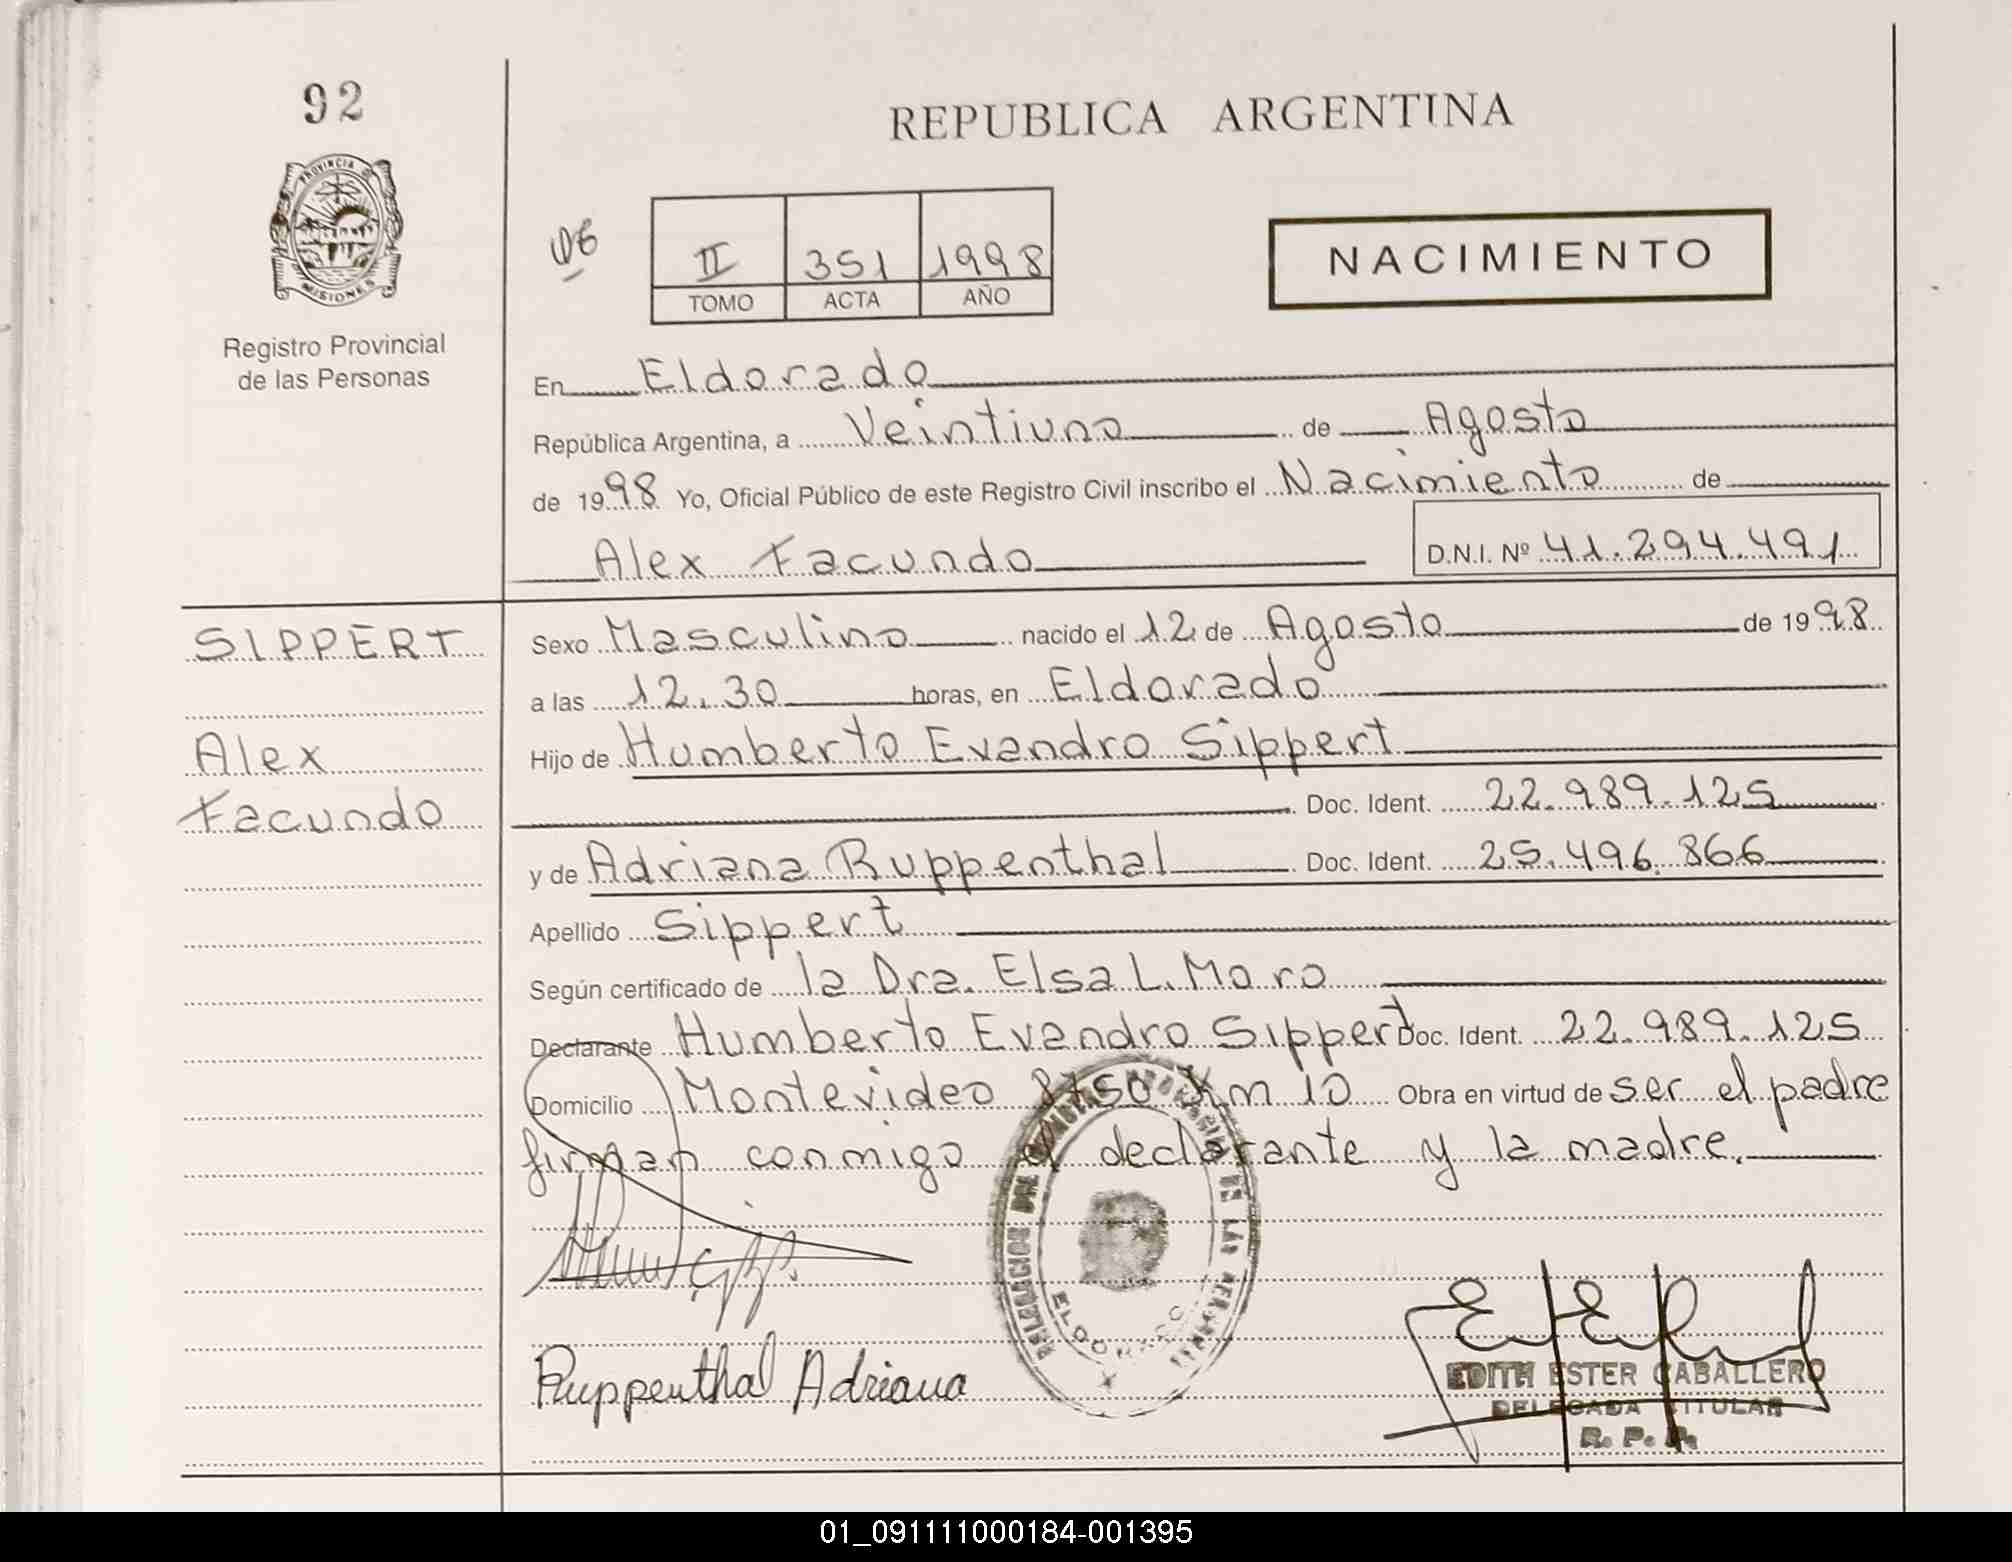 92
REPUBLICA ARGENTINA
PROVINCIA DE
MISIONES
Registro Provincial
de las Personas
II 351 1998
TOMO ACTA AÑO
NACIMIENTO
En Eldorado
República Argentina, a Veintiuno de Agosto
de 1998 Yo, Oficial Público de este Registro Civil inscribo el Nacimiento de
Alex Facundo D.N.I. Nº 41.294.491
SIPPERT
Alex
Facundo
Sexo Masculino nacido el 12 de Agosto de 1998
a las 12.30 horas, en Eldorado
Hijo de Humberto Evandro Sippert
Doc. Ident. 22.989.125
y de Adriana Ruppenthal Doc. Ident. 25.496.866
Apellido Sippert
Según certificado de la Dra. Elsa L. Moro
Declarante Humberto Evandro Sippert Doc. Ident. 22.989.125
Domicilio Montevideo 3750 Km 10 Obra en virtud de ser el padre
firman conmigo el declarante y la madre.
ELDORADO
Ruppenthal Adriana
EDITH ESTER CABALLERO
DELEGADA TITULAR
R. P. P.
01_091111000184-001395